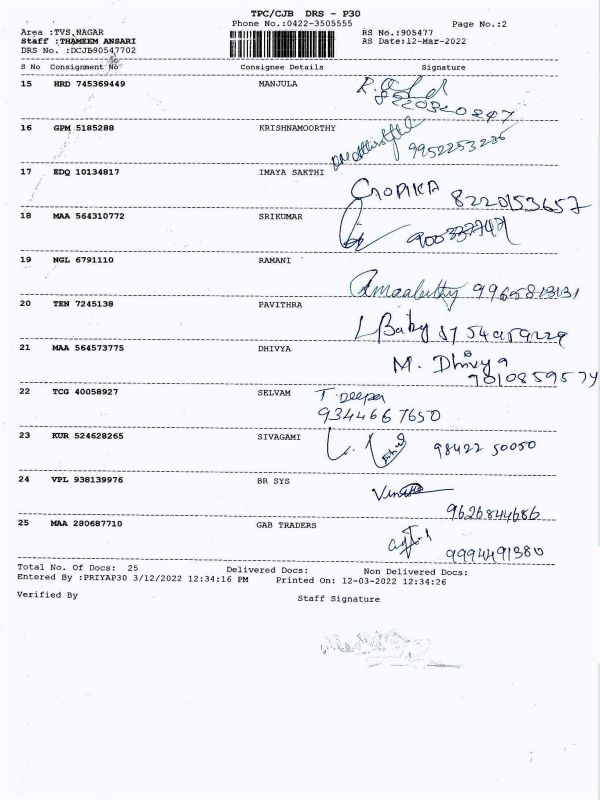 TPC/CJB DRS - P30
Phone No.:0422-3505555 Page No.:2
Area :TVS NAGAR RS No.:905477
Staff :THAMEEM ANSARI RS Date:12-Mar-2022
DRS No. :DCJB90547702
S No Consignment No Consignee Details Signature
15 HRD 745369449 MANJULA
16 GPM 5185288 KRISHNAMOORTHY
9952253236
17 EDQ 10134817 IMAYA SAKTHI
GOPIKA 8220153657
18 MAA 564310772 SRIKUMAR
19 NGL 6791110 RAMANI
9965813131
20 TEN 7245138 PAVITHRA
L Baby
21 MAA 564573775 DHIVYA
M. Dhivya
9010859574
22 TCG 40058927 SELVAM T Deepa
9344667650
23 KUR 524628265 SIVAGAMI
98422 50050
24 VPL 938139976 BR SYS
9626844686
25 MAA 280687710 GAB TRADERS
9994491380
Total No. Of Docs: 25 Delivered Docs: Non Delivered Docs:
Entered By :PRIYAP30 3/12/2022 12:34:16 PM Printed On: 12-03-2022 12:34:26
Verified By Staff Signature